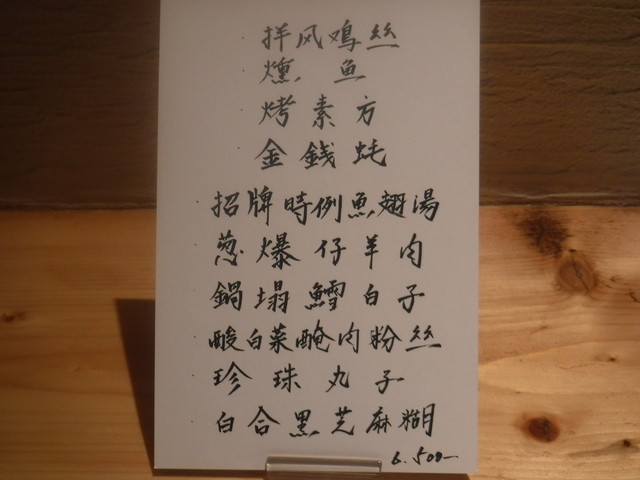 拌风鸡絲
燻魚
烤素方
金錢蚝
招牌時例魚翅湯
葱爆仔羊肉
鍋塌鱈白子
酸白菜醃肉粉絲
珍珠丸子
白合黒芝麻糊
6.500-